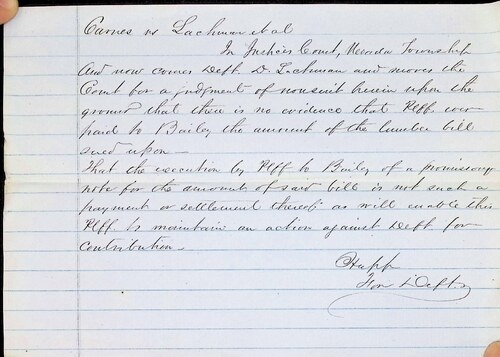 Carnes vs Lachman et al
In Justices Court, Nevada Township
And now comes Deft. D. Lachman and moves the
Court for a judgment of nonsuit herein upon the
ground that there is no evidence that Plff. ever
paid to Bailey the amount of the lumber bill
sued upon —
That the execution by Plff to Bailey of a promissory
note for the amount of said bill is not such a
payment or settlement thereof as will enable this
Plff. to maintain an action against Deft for
contribution —
For Deft.